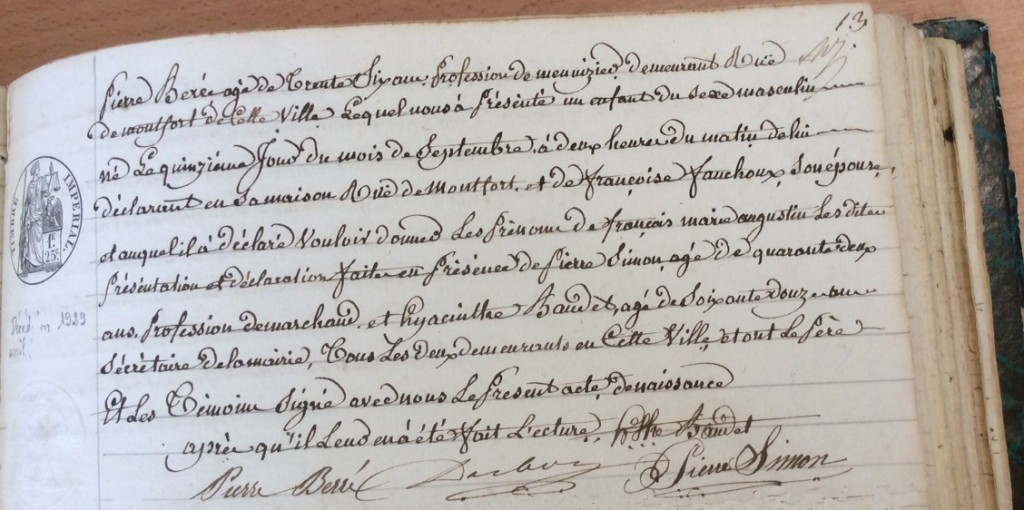 13
Pierre Beré agé de Trente Six ans, Profession de menuizier demeurant Rue
de montfort de Cette Ville Lequel nous à Présenté un enfant du sexe masculin
né Le quinziéme Jour du mois de Septembre, à deux heures du matin de lui
déclarant en sa maison Rue de montfort, et de françoise fauchoux, Son épouse,
et auquel il à déclaré Vouloir donner Les Prénoms de françois marie augustin Les dites
Présentation et déclaration faite en Présence de Pierre Simon, agé de quarante deux
ans, Profession de marchand, et hyacinthe Baudet, agé de Soixante douze ans
Sécrétaire de la mairie, Tous Les deux demeurants en Cette Ville, et ont Le Père
Et Les Témoins Signé avec nous Le Présent acte de naissance
après qu'il Leur en à été fait Lecture,
Baudet
Pierre Berré
Pierre Simon
TIMBRE IMPERIAL
1F
25c
1929